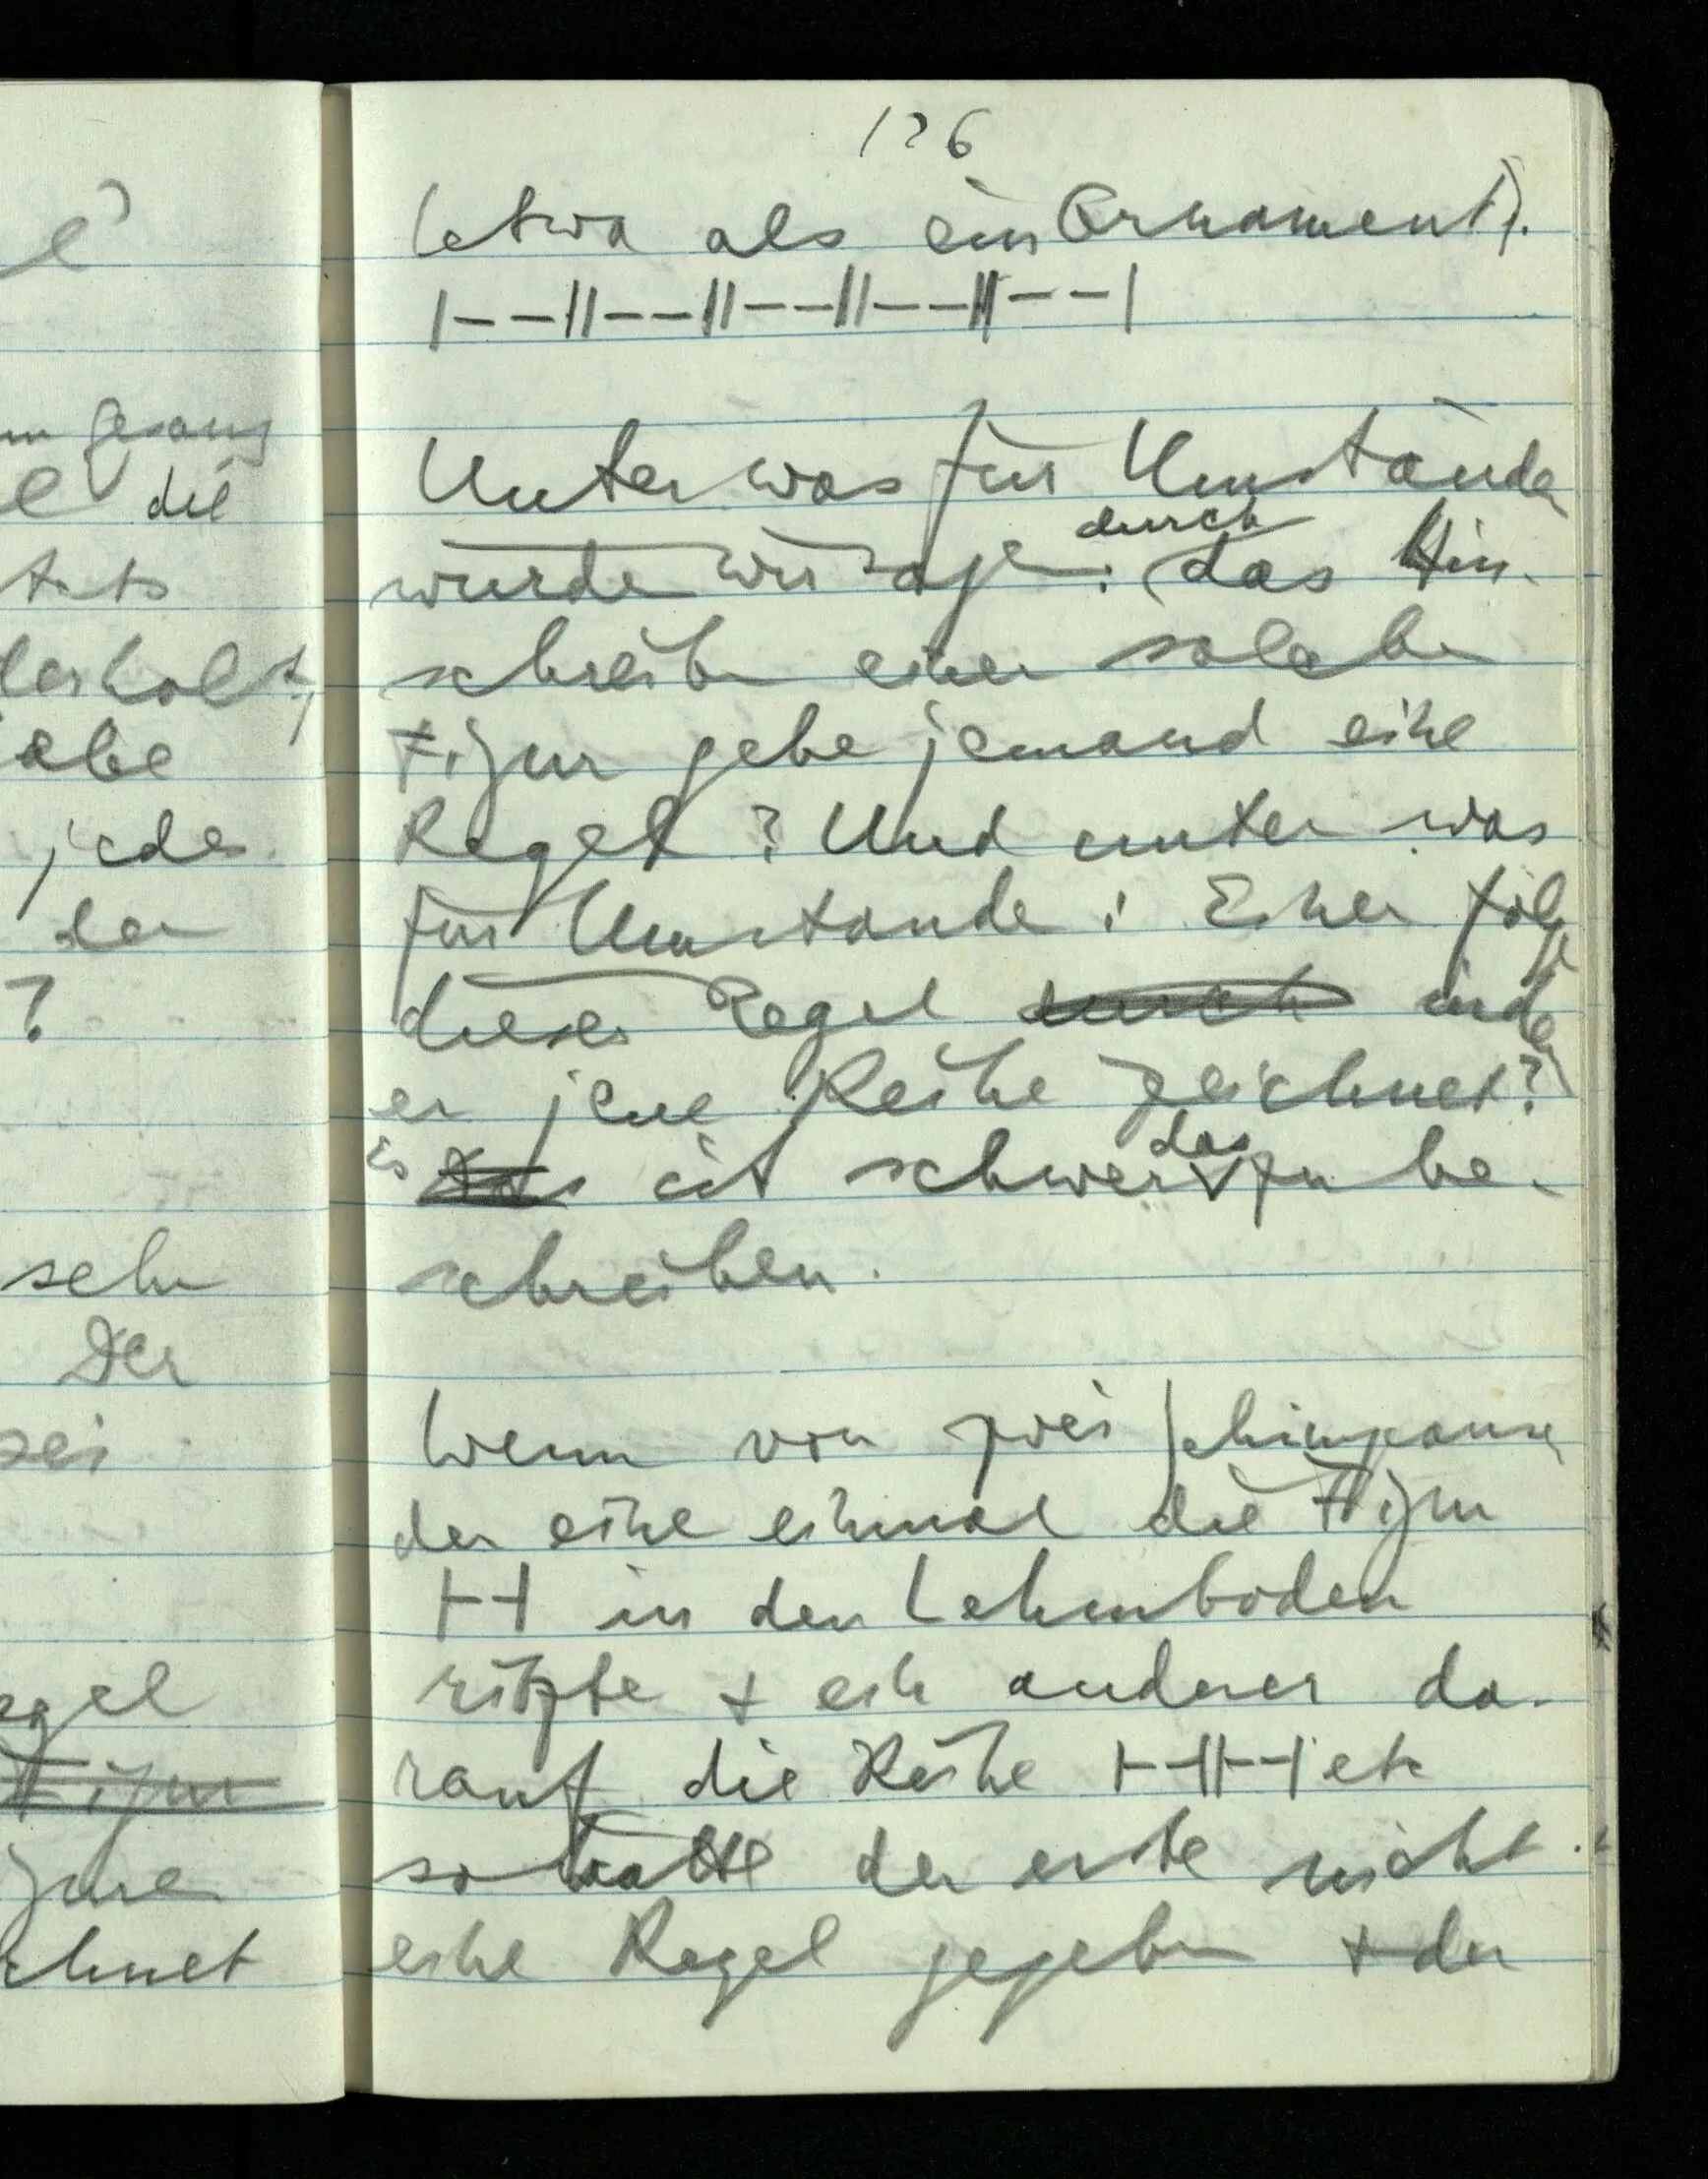 126
(etwa als ein Ornament).
|––||––||––||––||––|
Unter was für Umständen
würde wir sagen: durch das Hin-
schreiben einer solchen
Figur gebe jemand eine
Regel? Und unter was
für Umstände: Einer folge
dieser Regel durch indem
er jene Reihe zeichnet?
Es Das ist schwer das zu be-
schreiben.
Wenn von zwei Schimpansen
der eine einmal die Figur
|--| in den Lehmboden
ritzte + ein anderer da-
rauf die Reihe |--||--| etc
so hätte der erste nicht
eine Regel gegeben + der
Gesang
die
jedes
der
?
sehr
Der
sei
Figur